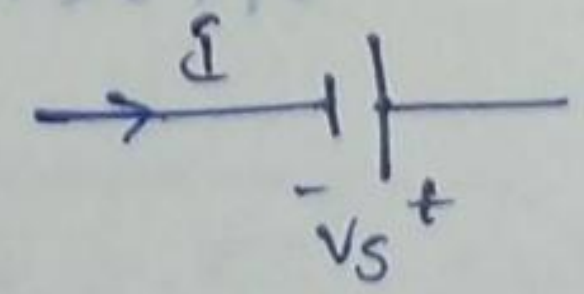 I
- +
Vs